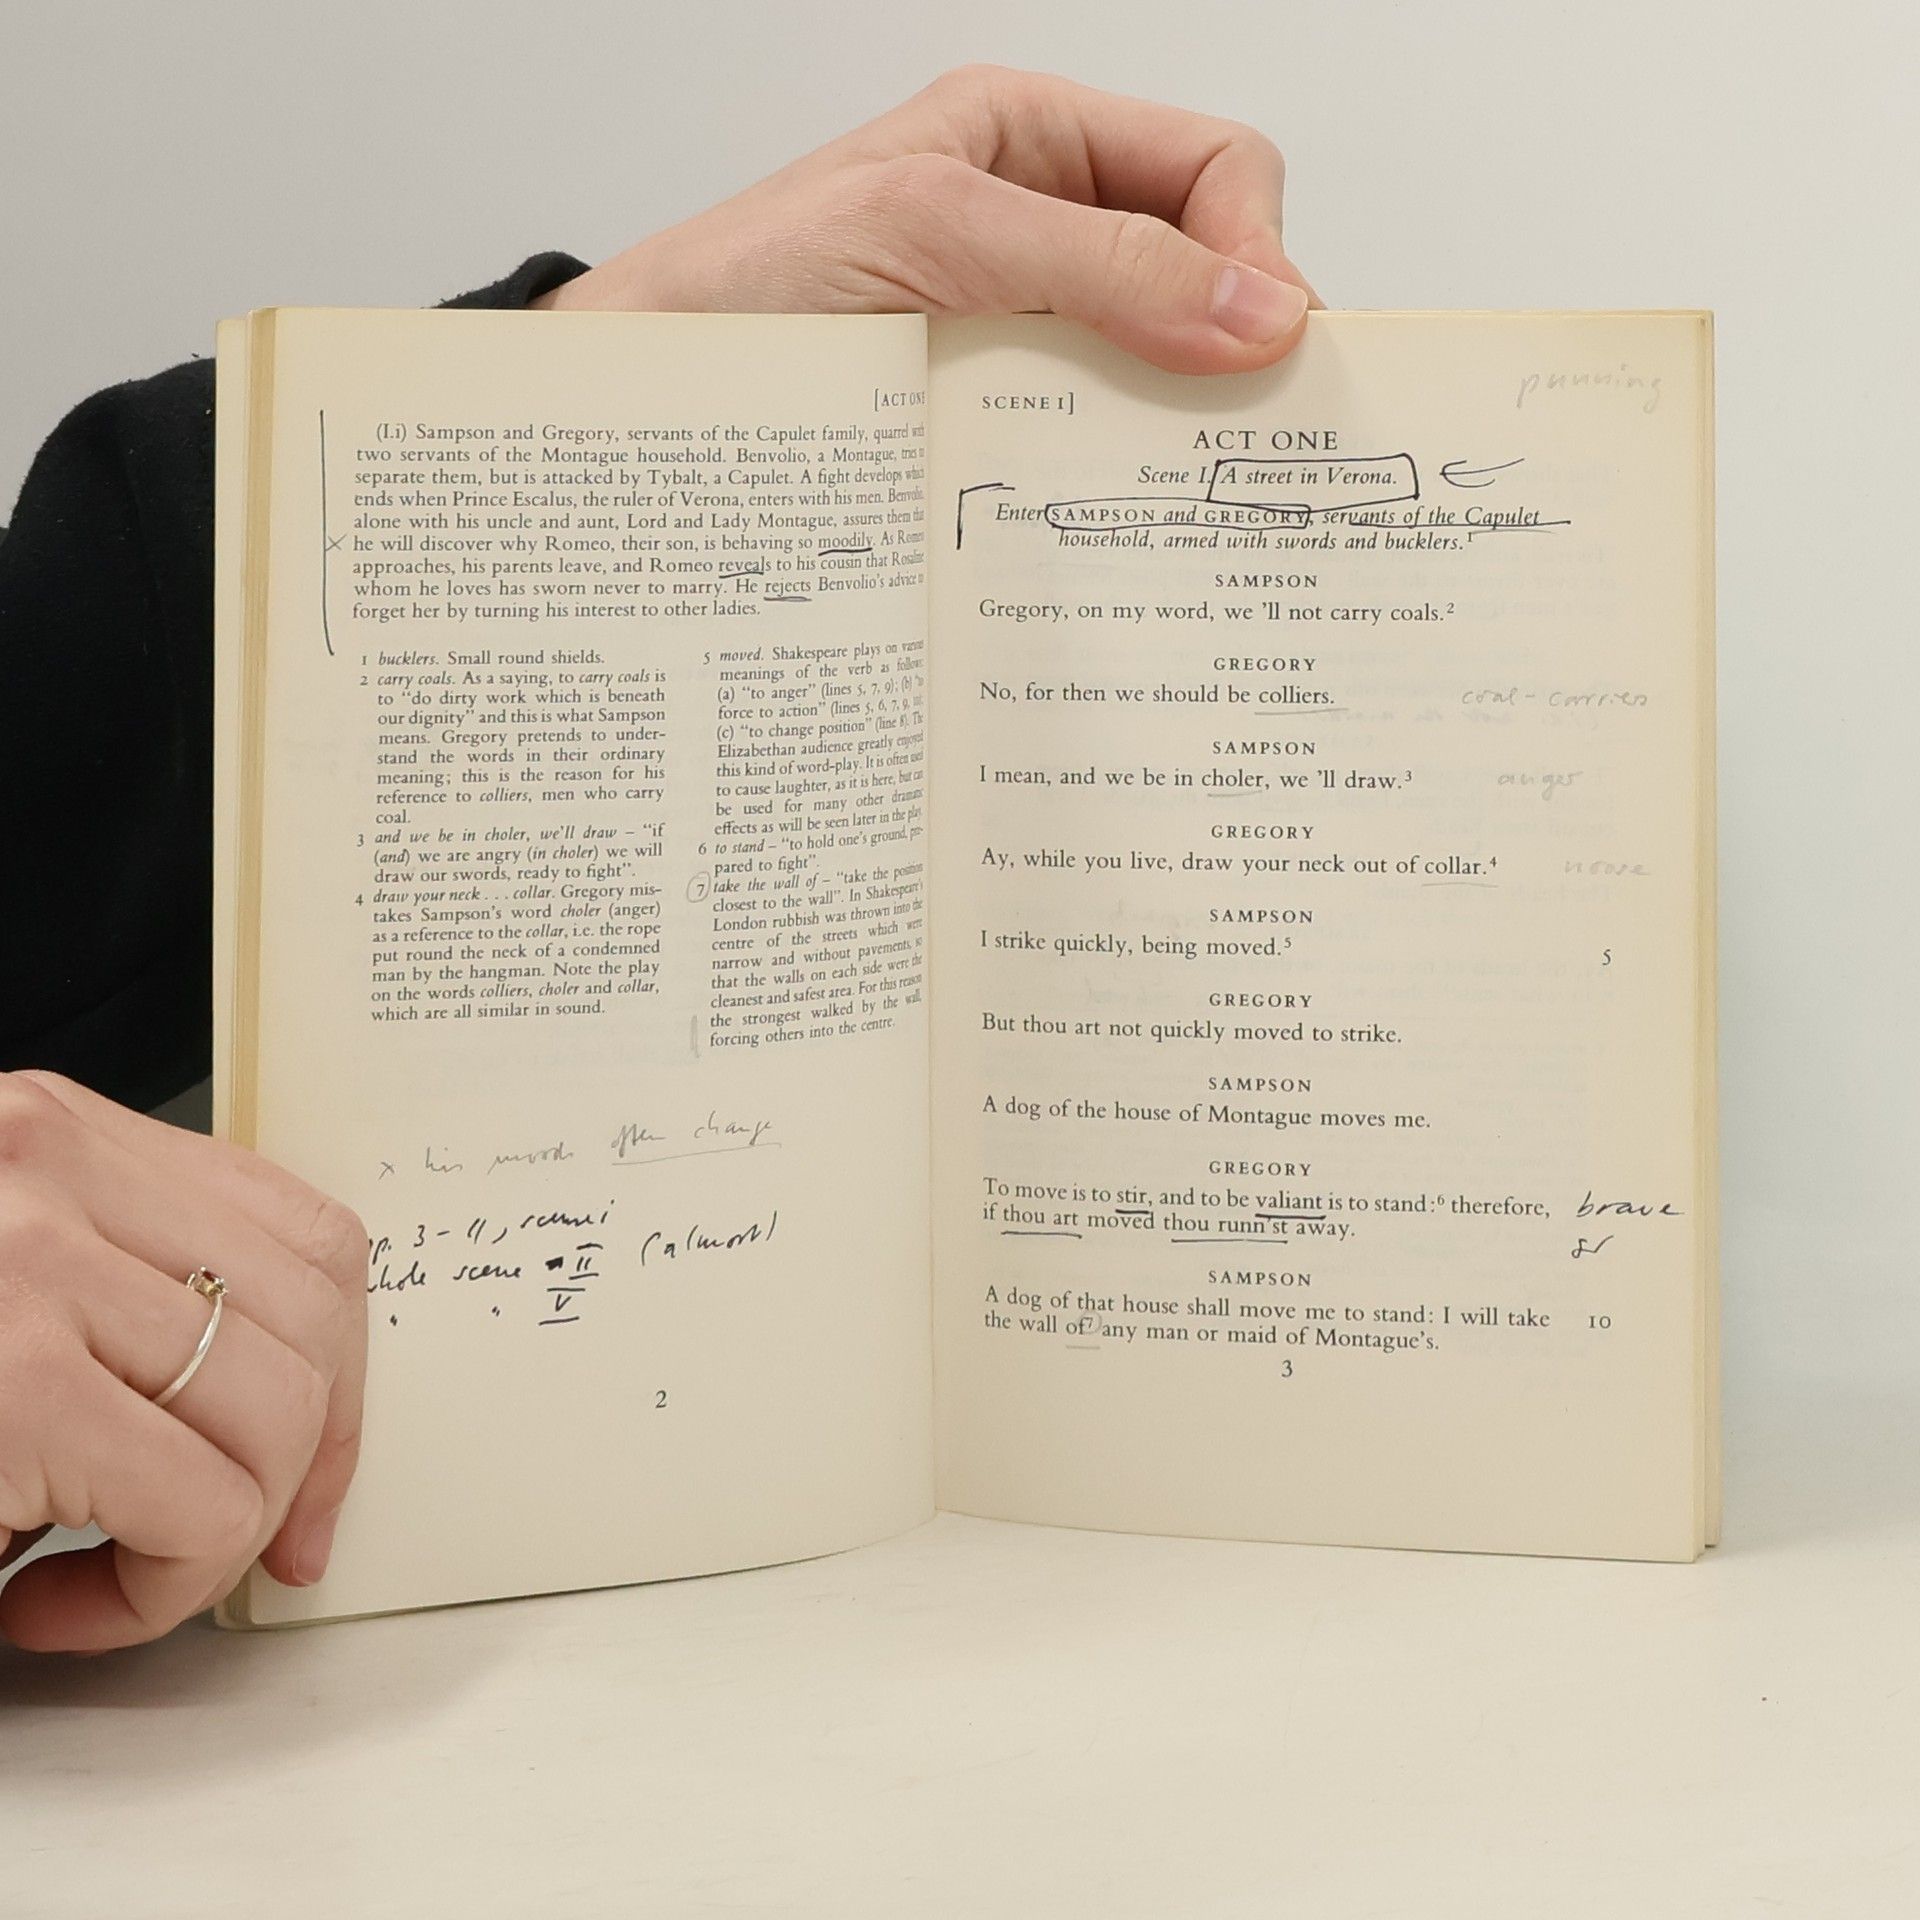 [ACT ONE
(I.i) Sampson and Gregory, servants of the Capulet family, quarrel with
two servants of the Montague household. Benvolio, a Montague, tries to
separate them, but is attacked by Tybalt, a Capulet. A fight develops which
ends when Prince Escalus, the ruler of Verona, enters with his men. Benvolio,
alone with his uncle and aunt, Lord and Lady Montague, assures them that
he will discover why Romeo, their son, is behaving so moodily. As Romeo
approaches, his parents leave, and Romeo reveals to his cousin that Rosaline
whom he loves has sworn never to marry. He rejects Benvolio's advice to
forget her by turning his interest to other ladies.
1 bucklers. Small round shields.
2 carry coals. As a saying, to carry coals is
to “do dirty work which is beneath
our dignity” and this is what Sampson
means. Gregory pretends to under-
stand the words in their ordinary
meaning; this is the reason for his
reference to colliers, men who carry
coal.
3 and we be in choler, we'll draw – “if
(and) we are angry (in choler) we will
draw our swords, ready to fight”.
4 draw your neck . . . collar. Gregory mis-
takes Sampson's word choler (anger)
as a reference to the collar, i.e. the rope
put round the neck of a condemned
man by the hangman. Note the play
on the words colliers, choler and collar,
which are all similar in sound.
5 moved. Shakespeare plays on various
meanings of the verb as follows:
(a) “to anger” (lines 5, 7, 9); (b) “to
force to action” (lines 5, 6, 7, 9,
(c) “to change position” (line 8). The
Elizabethan audience greatly enjoyed
this kind of word-play. It is often used
to cause laughter, as it is here, but can
be used for many other dramatic
effects as will be seen later in the play.
6 to stand – “to hold one's ground, pre-
pared to fight”.
7 take the wall of – “take the position
closest to the wall”. In Shakespeare's
London rubbish was thrown into the
centre of the streets which were
narrow and without pavements, so
that the walls on each side were the
cleanest and safest area. For this reason
the strongest walked by the wall,
forcing others into the centre.
x his moods often change
pp. 3 - 11, scene i
whole scene II (almost)
" " V
2
punning
SCENE I]
ACT ONE
Scene I. A street in Verona.
Enter SAMPSON and GREGORY, servants of the Capulet
household, armed with swords and bucklers.1
SAMPSON
Gregory, on my word, we 'll not carry coals.2
GREGORY
No, for then we should be colliers. coal-carriers
SAMPSON
I mean, and we be in choler, we 'll draw.3 anger
GREGORY
Ay, while you live, draw your neck out of collar.4 noose
SAMPSON
I strike quickly, being moved.5 5
GREGORY
But thou art not quickly moved to strike.
SAMPSON
A dog of the house of Montague moves me.
GREGORY
To move is to stir, and to be valiant is to stand:6 therefore, brave
if thou art moved thou runn'st away.
SAMPSON
A dog of that house shall move me to stand: I will take 10
the wall of7 any man or maid of Montague's.
3